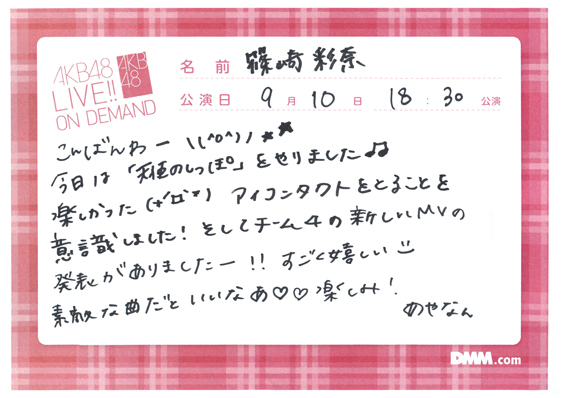 AKB48
LIVE!!
ON DEMAND
AKB
48
名前 篠崎彩奈
公演日 9月10日 18:30公演
こんばんわー \(^o^)/★★
今日は「天使のしっぽ」をやりました♫
楽しかった(*'ロ'*) アイコンタクトをとることを
意識しました！そしてチーム4の新しいMVの
発表がありましたー!! すごく嬉しい
素敵な曲だといいなあ♡♡楽しみ！
あやなん
DMM.com